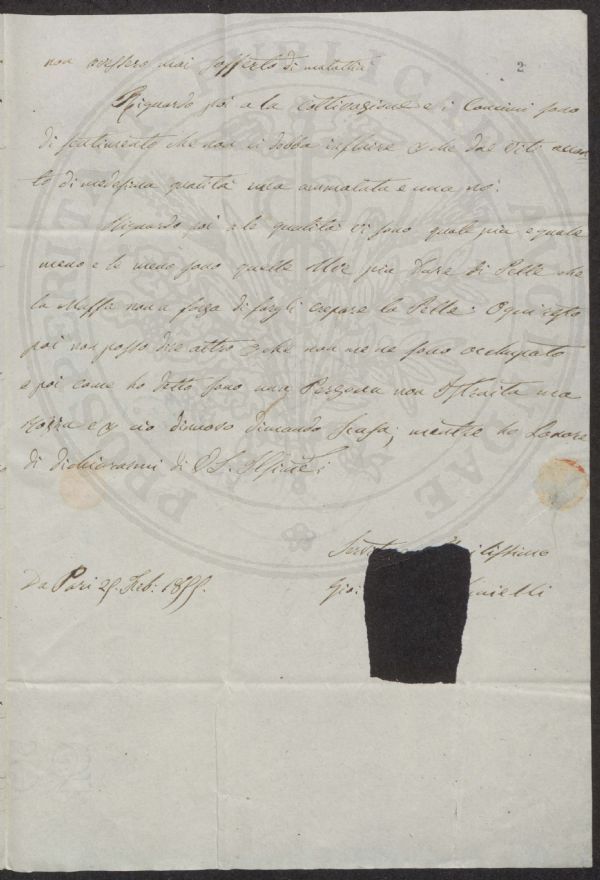 2
non avessero mai sofferto di malattia
Riguardo poi a la coltivazione e i Concimi sono
di sentimento che non ci debba influire che due Viti accan
to di medesima qualità una ammalata e una no.
Riguardo poi a le qualità vi sono quale più e quale
meno e le meno sono quelle Uve più dure di Pelle che
la Muffa non a forza di fargli crepare la Pelle: Ogni resto
poi non posso dire altro che non me ne sono occhupato
e poi come ho detto sono una Persona non Istruita ma
Rozza e ciò di nuovo dimando Scusa; mentre ho Lonore
di dichiararmi di
Da Pari 25. Feb: 1855.
Gio:
PROSPERITATI PUBLICAE